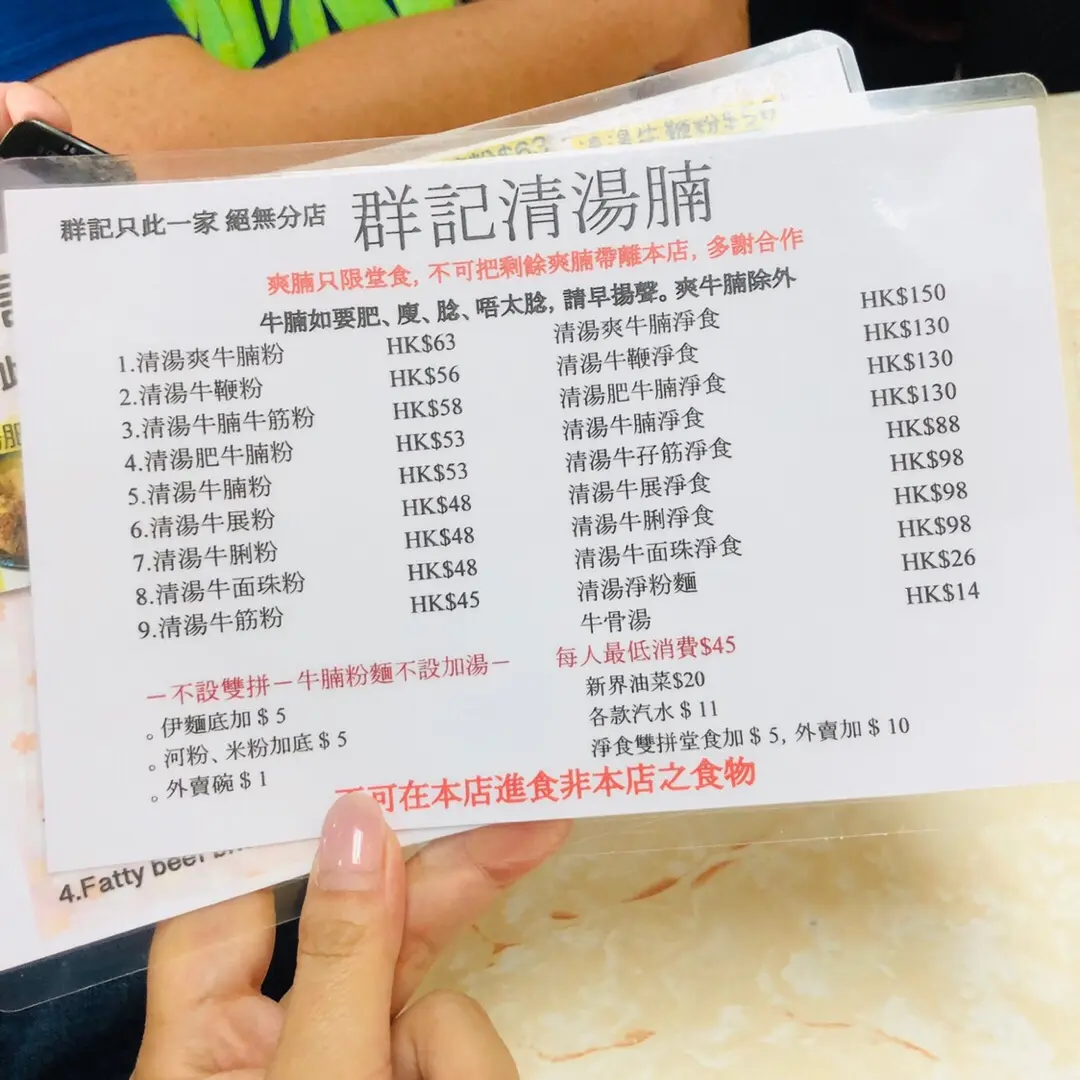 群記只此一家 絕無分店
群記清湯腩
爽腩只限堂食, 不可把剩餘爽腩帶離本店, 多謝合作
牛腩如要肥、廋、腍、唔太腍, 請早揚聲。爽牛腩除外
1.清湯爽牛腩粉 HK$63
2.清湯牛鞭粉 HK$56
3.清湯牛腩牛筋粉 HK$58
4.清湯肥牛腩粉 HK$53
5.清湯牛腩粉 HK$53
6.清湯牛展粉 HK$48
7.清湯牛脷粉 HK$48
8.清湯牛面珠粉 HK$48
9.清湯牛筋粉 HK$45
清湯爽牛腩淨食 HK$150
清湯牛鞭淨食 HK$130
清湯肥牛腩淨食 HK$130
清湯牛腩淨食 HK$130
清湯牛孖筋淨食 HK$88
清湯牛展淨食 HK$98
清湯牛脷淨食 HK$98
清湯牛面珠淨食 HK$98
清湯淨粉麵 HK$26
牛骨湯 HK$14
－不設雙拼－牛腩粉麵不設加湯－
。伊麵底加 $ 5
。河粉、米粉加底 $ 5
。外賣碗 $ 1
每人最低消費$45
新界油菜$20
各款汽水 $ 11
淨食雙拼堂食加 $ 5, 外賣加 $ 10
可在本店進食非本店之食物
4.Fatty beef